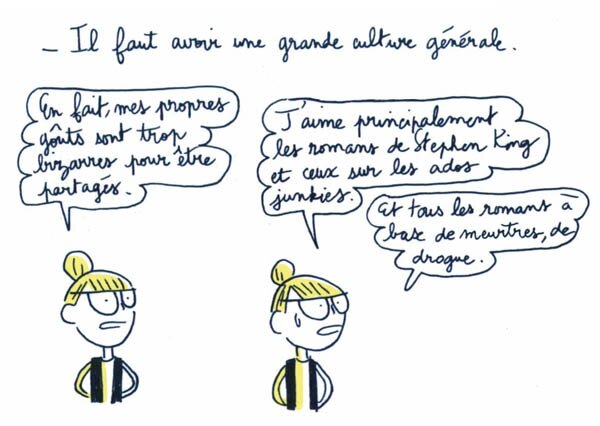 – Il faut avoir une grande culture générale.
En fait, mes propres
goûts sont trop
bizarres pour être
partagés.
J'aime principalement
les romans de Stephen King
et ceux sur les ados
junkies.
Et tous les romans à
base de meurtres, de
drogue.